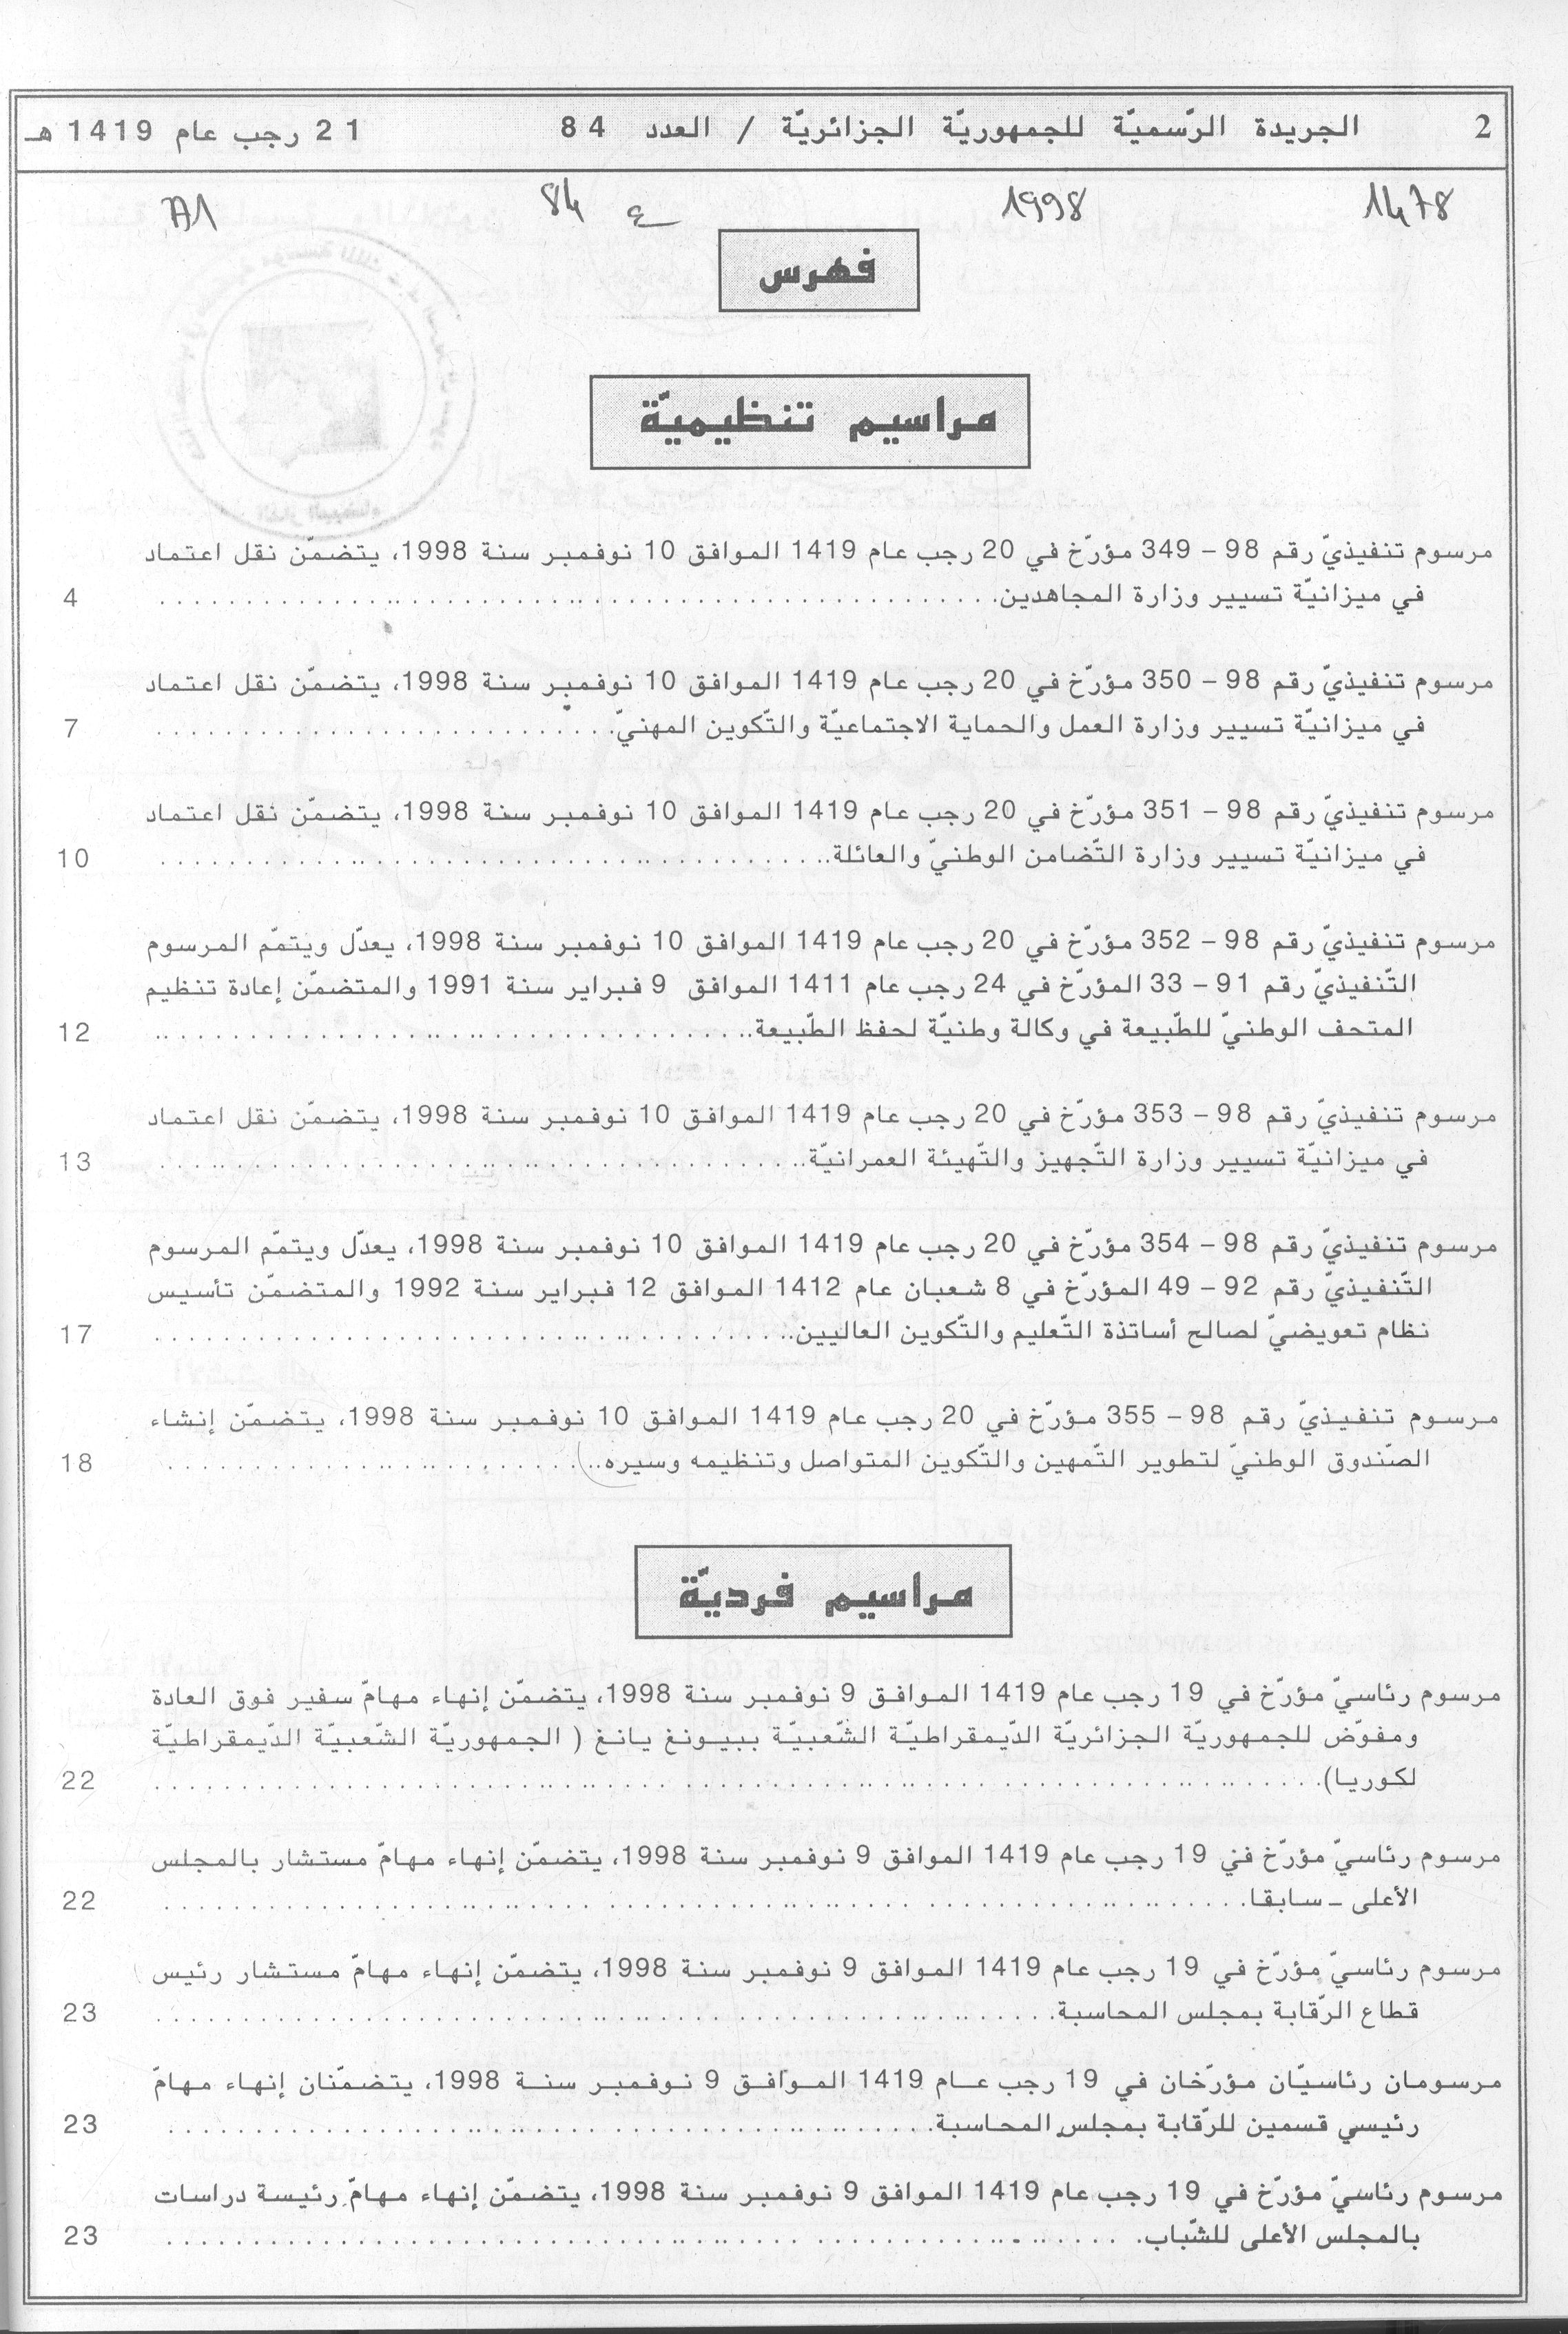 2 الجريدة الرّسميّة للجمهوريّة الجزائريّة / العدد 84 21 رجب عام 1419 هـ
1478 1998 ع 84 A1
فهرس
مراسيم تنظيميّة
مرسوم تنفيذيّ رقم 98 – 349 مؤرّخ في 20 رجب عام 1419 الموافق 10 نوفمبر سنة 1998، يتضمّن نقل اعتماد
في ميزانيّة تسيير وزارة المجاهدين. 4
مرسوم تنفيذيّ رقم 98 – 350 مؤرّخ في 20 رجب عام 1419 الموافق 10 نوفمبر سنة 1998، يتضمّن نقل اعتماد
في ميزانيّة تسيير وزارة العمل والحماية الاجتماعيّة والتّكوين المهنيّ. 7
مرسوم تنفيذيّ رقم 98 – 351 مؤرّخ في 20 رجب عام 1419 الموافق 10 نوفمبر سنة 1998، يتضمّن نقل اعتماد
في ميزانيّة تسيير وزارة التّضامن الوطنيّ والعائلة. 10
مرسوم تنفيذيّ رقم 98 – 352 مؤرّخ في 20 رجب عام 1419 الموافق 10 نوفمبر سنة 1998، يعدّل ويتمّم المرسوم
التّنفيذيّ رقم 91 – 33 المؤرّخ في 24 رجب عام 1411 الموافق 9 فبراير سنة 1991 والمتضمّن إعادة تنظيم
المتحف الوطنيّ للطّبيعة في وكالة وطنيّة لحفظ الطّبيعة. 12
مرسوم تنفيذيّ رقم 98 – 353 مؤرّخ في 20 رجب عام 1419 الموافق 10 نوفمبر سنة 1998، يتضمّن نقل اعتماد
في ميزانيّة تسيير وزارة التّجهيز والتّهيئة العمرانيّة. 13
مرسوم تنفيذيّ رقم 98 – 354 مؤرّخ في 20 رجب عام 1419 الموافق 10 نوفمبر سنة 1998، يعدّل ويتمّم المرسوم
التّنفيذيّ رقم 92 – 49 المؤرّخ في 8 شعبان عام 1412 الموافق 12 فبراير سنة 1992 والمتضمّن تأسيس
نظام تعويضيّ لصالح أساتذة التّعليم والتّكوين العاليين. 17
مرسوم تنفيذيّ رقم 98 – 355 مؤرّخ في 20 رجب عام 1419 الموافق 10 نوفمبر سنة 1998، يتضمّن إنشاء
الصّندوق الوطنيّ لتطوير التّمهين والتّكوين المتواصل وتنظيمه وسيره. 18
مراسيم فرديّة
مرسوم رئاسيّ مؤرّخ في 19 رجب عام 1419 الموافق 9 نوفمبر سنة 1998، يتضمّن إنهاء مهامّ سفير فوق العادة
ومفوّض للجمهوريّة الجزائريّة الدّيمقراطيّة الشّعبيّة ببيونغ يانغ ( الجمهوريّة الشّعبيّة الدّيمقراطيّة
لكوريا). 22
مرسوم رئاسيّ مؤرّخ في 19 رجب عام 1419 الموافق 9 نوفمبر سنة 1998، يتضمّن إنهاء مهامّ مستشار بالمجلس
الأعلى ـ سابقا. 22
مرسوم رئاسيّ مؤرّخ في 19 رجب عام 1419 الموافق 9 نوفمبر سنة 1998، يتضمّن إنهاء مهامّ مستشار رئيس
قطاع الرّقابة بمجلس المحاسبة. 23
مرسومان رئاسيّان مؤرّخان في 19 رجب عام 1419 الموافق 9 نوفمبر سنة 1998، يتضمّنان إنهاء مهامّ
رئيسي قسمين للرّقابة بمجلس المحاسبة. 23
مرسوم رئاسيّ مؤرّخ في 19 رجب عام 1419 الموافق 9 نوفمبر سنة 1998، يتضمّن إنهاء مهامّ رئيسة دراسات
بالمجلس الأعلى للشّباب. 23